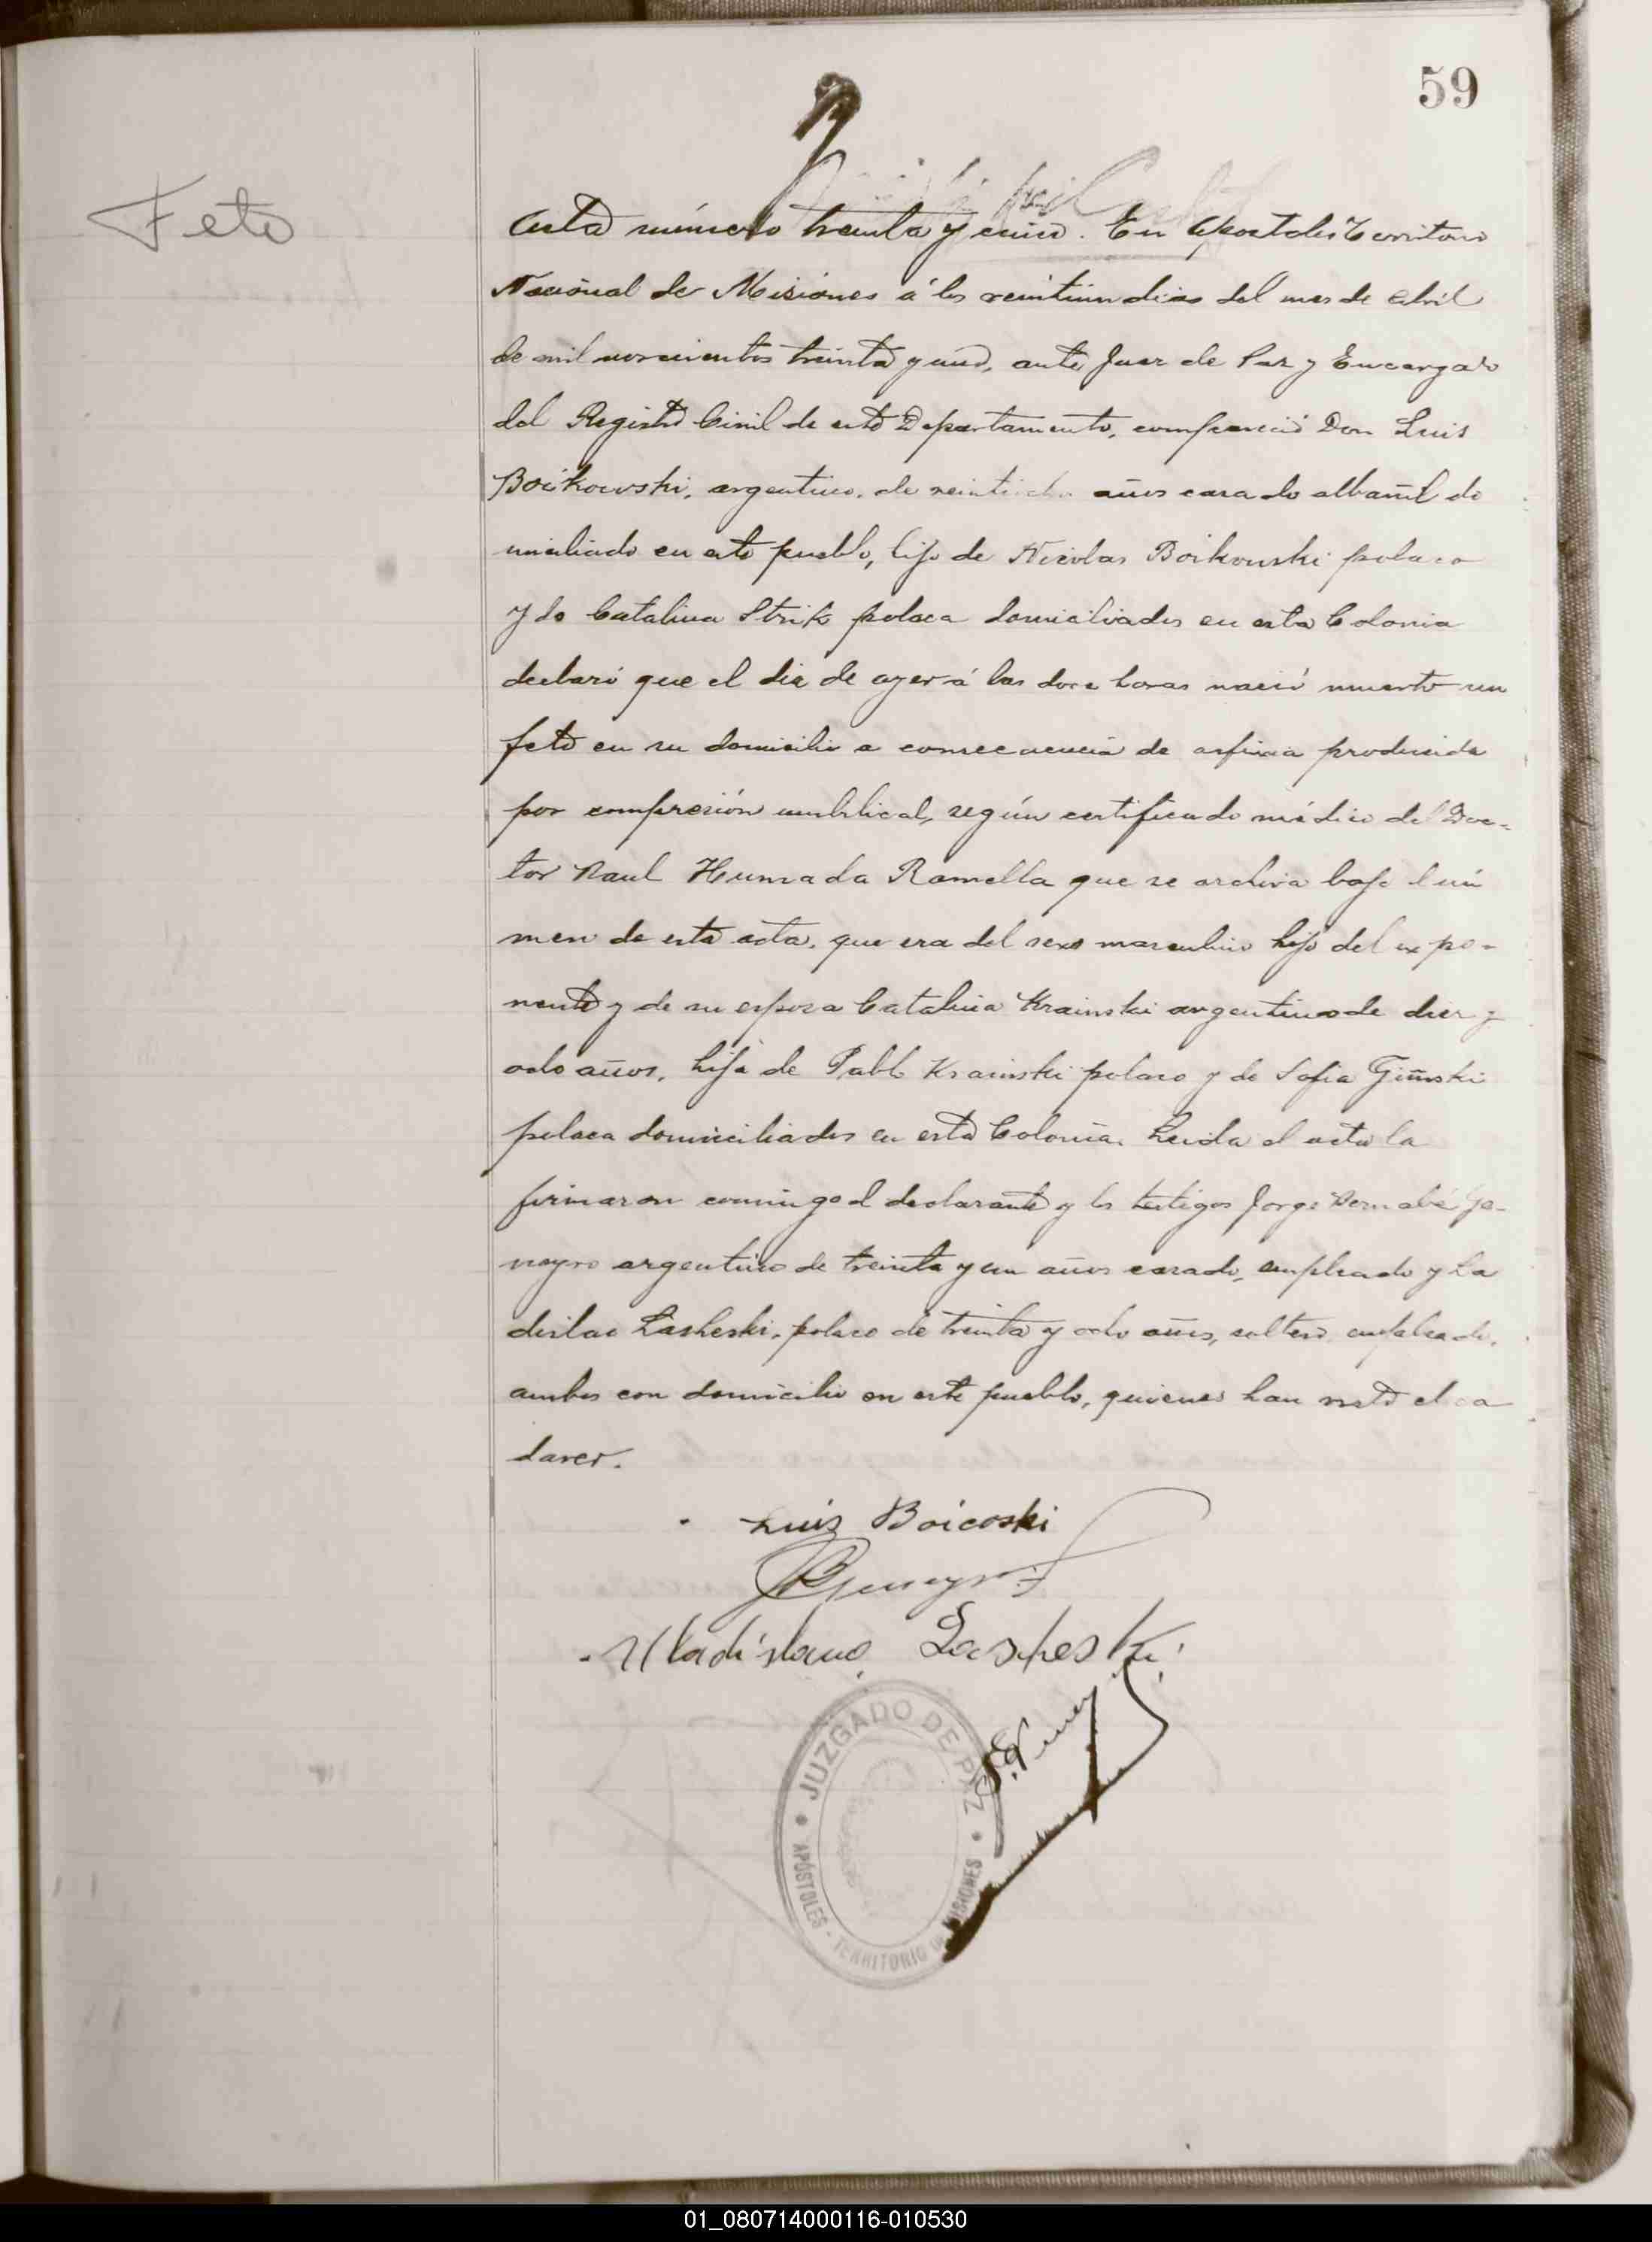 59
Feto
Acta número treinta y cinco. En Apostoles Territorio
Nacional de Misiones á los veintiun dias del mes de Abril
de mil novecientos treinta y uno, ante Juez de Paz y Encargado
del Registro Civil de este Departamento, compareció Don Luis
Boikowski, argentino, de años casado albañil do
miciliado en este pueblo, hijo de Nicolas Boikowski polaco
y de Catalina Strik polaca domiciliados en esta Colonia
declaró que el dia de ayer á las doce horas nació muerto un
feto en su domicilio a consecuencia de asfixia producida
por compresión umbilical, según certificado médico del Doc-
tor Raul Humada Ramella que se archiva bajo el nú
mero de esta acta, que era del sexo masculino hijo del expo-
nente y de su esposa Catalina Krainski argentina de diez y
ocho años, hija de Pablo Krainski polaco y de Sofia Giñski
polaca domiciliados en esta Colonia. Leida el acta la
firmaron conmigo el declarante y los testigos Jorge Bernabé Ge-
neyro argentino de treinta y un años casado, empleado y La
dislao Lasheski, polaco de treinta y ocho años, soltero, empleado,
ambos con domicilio en este pueblo, quienes han visto el ca
daver.
Luis Boicoski
JBGeneyro
Uladislauo Lasheski
JUZGADO DE PAZ
APÓSTOLES - TERRITORIO DE MISIONES
01_080714000116-010530